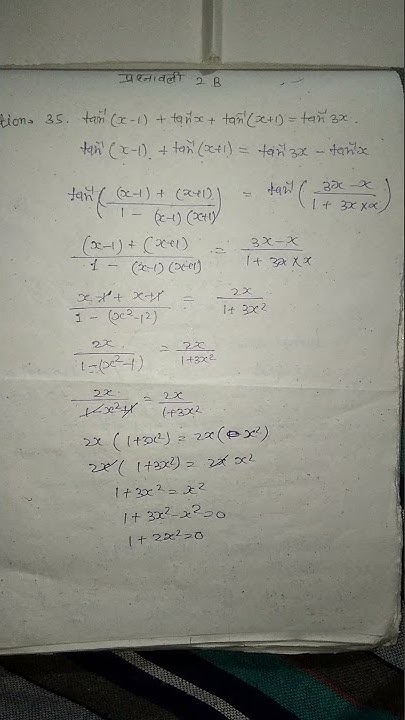 प्रश्नावली 2 B
tion. 35. tan⁻¹(x-1) + tan⁻¹x + tan⁻¹(x+1) = tan⁻¹3x.
tan⁻¹(x-1) + tan⁻¹(x+1) = tan⁻¹3x - tan⁻¹x
tan⁻¹((x-1) + (x+1) / 1 - (x-1)(x+1)) = tan⁻¹(3x-x / 1+3x×x)
(x-1) + (x+1) / 1 - (x-1)(x+1) = 3x-x / 1+3x×x
x-1+x+1 / 1-(x²-1²) = 2x / 1+3x²
2x / 1-(x²-1) = 2x / 1+3x²
2x / 1-x²+1 = 2x / 1+3x²
2x(1+3x²) = 2x(x²)
2x(1+3x²) = 2x x²
1+3x² = x²
1+3x²-x²=0
1+2x²=0